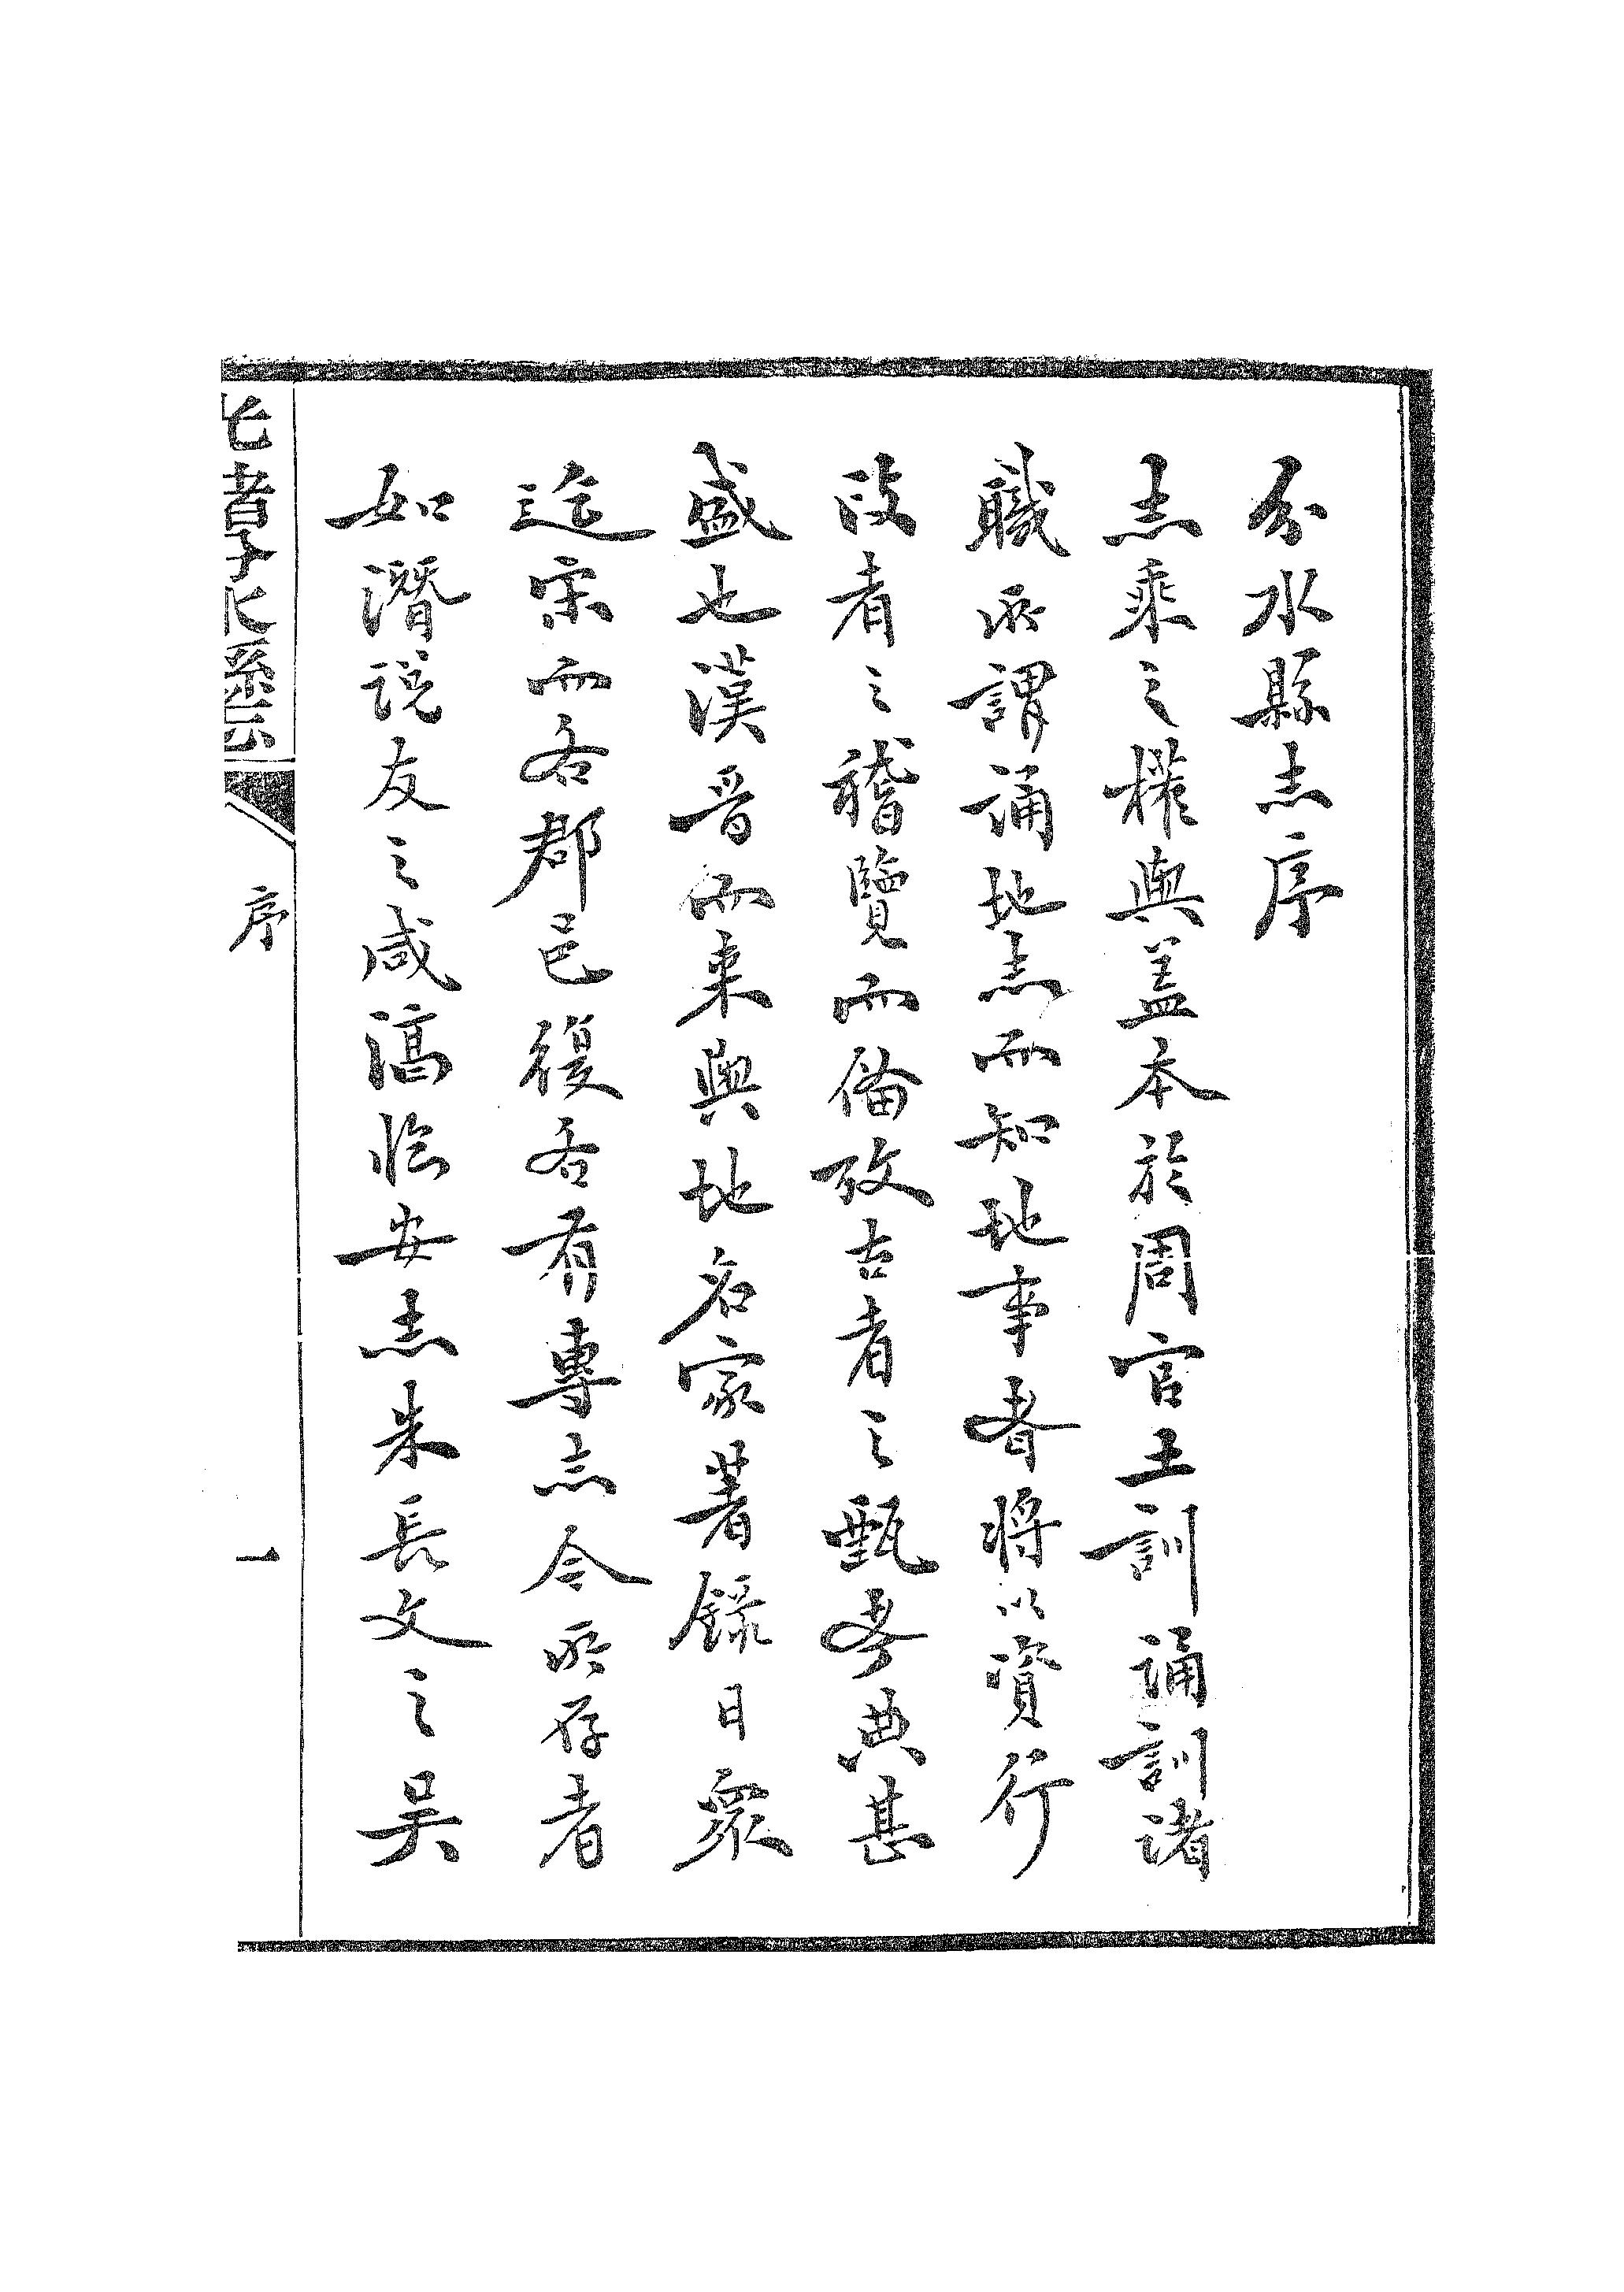 分水縣志序
志乘之權輿盖本於周官土訓誦訓諸
職所謂誦地志而知地事者將以資行
政者之稽覽而備攷古者之甄考典甚
盛也漢晉而来輿地名家著錄日眾
迄宋而各郡邑復各有專志今所存者
如潛說友之咸淳臨安志朱長文之吳
光緒分水縣志
序
一